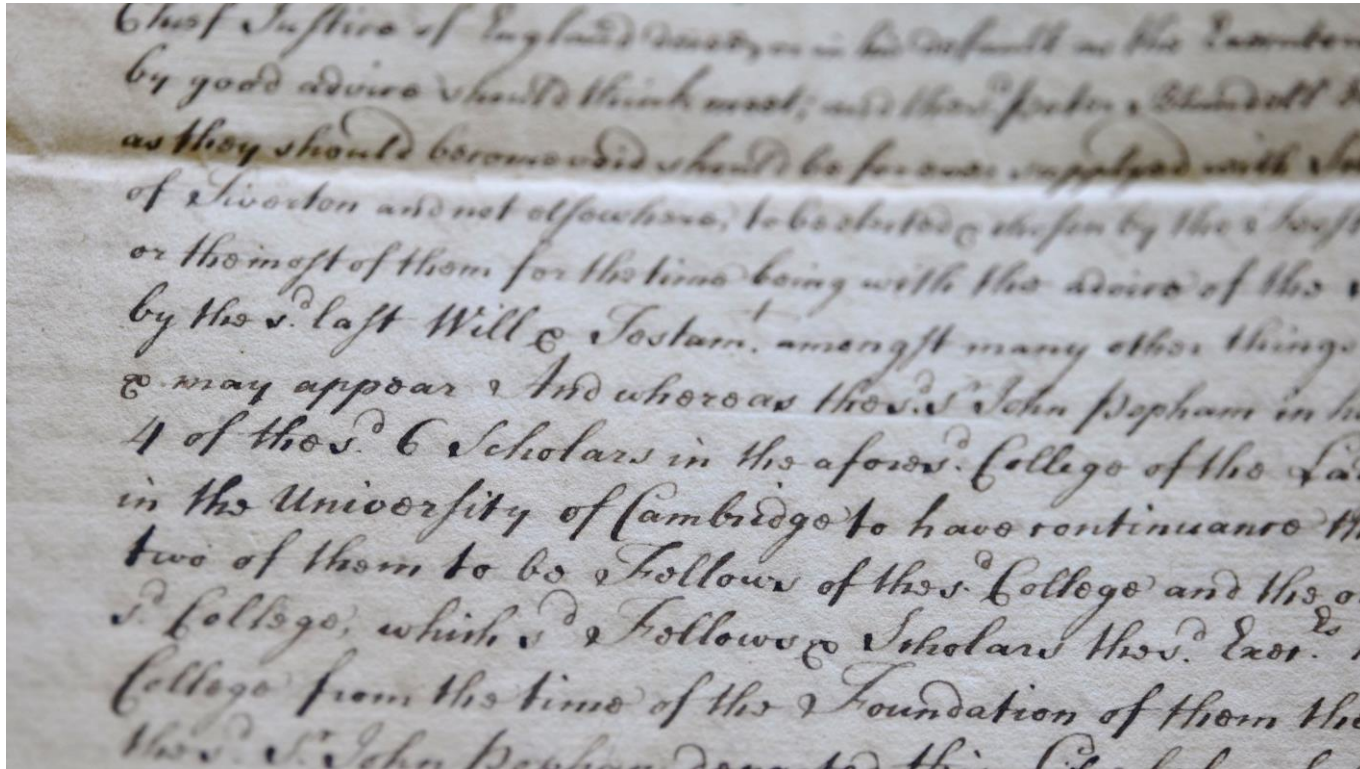 Chief Justice of England
by good advice should think meet; and the sd. Peter Blundell
as they should become void should be forever supplyed with
of Tiverton and not elsewhere, to be elected & chosen by the
or the most of them for the time being with the advice of the
by the sd. last Will & Testamt. amongst many other things
& may appear And whereas the sd. Sr. John Popham in
4 of the sd. 6 Scholars in the aforesd. College of the
in the University of Cambridge to have continuance
two of them to be Fellows of the sd. College and the
sd. College, which sd. Fellows & Scholars the sd. Exec.rs
College from the time of the Foundation of them
the sd. Sr. John Popham